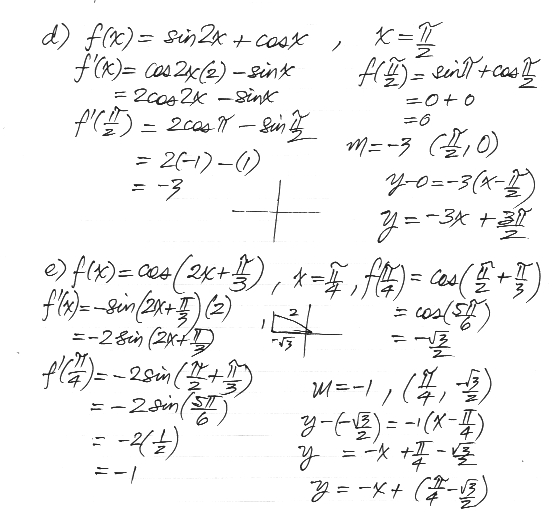 d) f(x) = sin2x + cosx , x = π/2
f'(x) = cos2x(2) - sinx
= 2cos2x - sinx
f'(π/2) = 2cosπ - sin π/2
= 2(-1) - (1)
= -3
f(π/2) = sinπ + cos π/2
= 0 + 0
= 0
m = -3 (π/2, 0)
y - 0 = -3(x - π/2)
y = -3x + 3π/2
e) f(x) = cos(2x + π/3) , x = π/4 , f(π/4) = cos(π/2 + π/3)
f'(x) = -sin(2x + π/3)(2)
= -2sin(2x + π/3)
f'(π/4) = -2sin(π/2 + π/3)
= -2sin(5π/6)
= -2(1/2)
= -1
1 2
-√3
= cos(5π/6)
= -√3/2
m = -1 , (π/4, -√3/2)
y - (-√3/2) = -1(x - π/4)
y = -x + π/4 - √3/2
y = -x + (π/4 - √3/2)